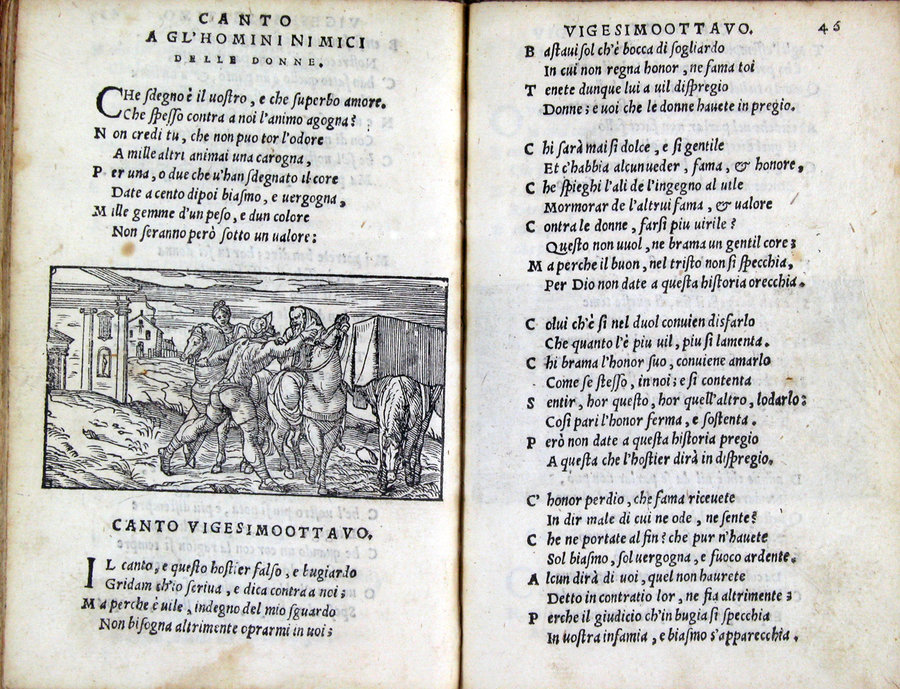 CANTO
A GL'HOMINI NIMICI
DELLE DONNE.
CHe sdegno è il uostro, e che superbo amore.
Che spesso contra a noi l'animo agogna?
Non credi tu, che non puo tor l'odore
A mille altri animai una carogna,
Per una, o due che u'han sdegnato il core
Date a cento dipoi biasmo, e uergogna,
Mille gemme d'un peso, e dun colore
Non seranno però sotto un ualore:
CANTO VIGESIMOOTTAVO.
IL canto, e questo hostier falso, e bugiardo
Gridam ch'io scriua, e dica contra a noi;
Ma perche è uile, indegno del mio sguardo
Non bisogna altrimente oprarmi in uoi;
VIGESIMOOTTAVO. 46
Bastaui sol ch'è bocca di sogliardo
In cui non regna honor, ne fama toi
Tenete dunque lui a uil dispregio
Donne; e uoi che le donne hauete in pregio.
Chi sarà mai si dolce, e si gentile
Et c'habbia alcun ueder, fama, & honore,
Che spieghi l'ali de l'ingegno al uile
Mormorar de l'altrui fama, & ualore
Contra le donne, farsi piu uirile?
Questo non uuol, ne brama un gentil core;
Ma perche il buon, nel tristo non si specchia,
Per Dio non date a questa historia orecchia.
Colui ch'è si nel duol conuien disfarlo
Che quanto l'è piu uil, piu si lamenta.
Chi brama l'honor suo, conuiene amarlo
Come se stesso, in noi; e si contenta
Sentir, hor questo, hor quell'altro, lodarlo:
Cosi pari l'honor ferma, e sostenta.
Però non date a questa historia pregio
A questa che l'hostier dirà in dispregio.
C'honor perdio, che fama riceuete
In dir male di cui ne ode, ne sente?
Che ne portate al fin? che pur n'hauete
Sol biasmo, sol uergogna, e fuoco ardente.
Alcun dirà di uoi, quel non haurete
Detto in contratio lor, ne fia altrimente;
Perche il giudicio ch'in bugia si specchia
In uostra infamia, e biasmo s'apparecchia.